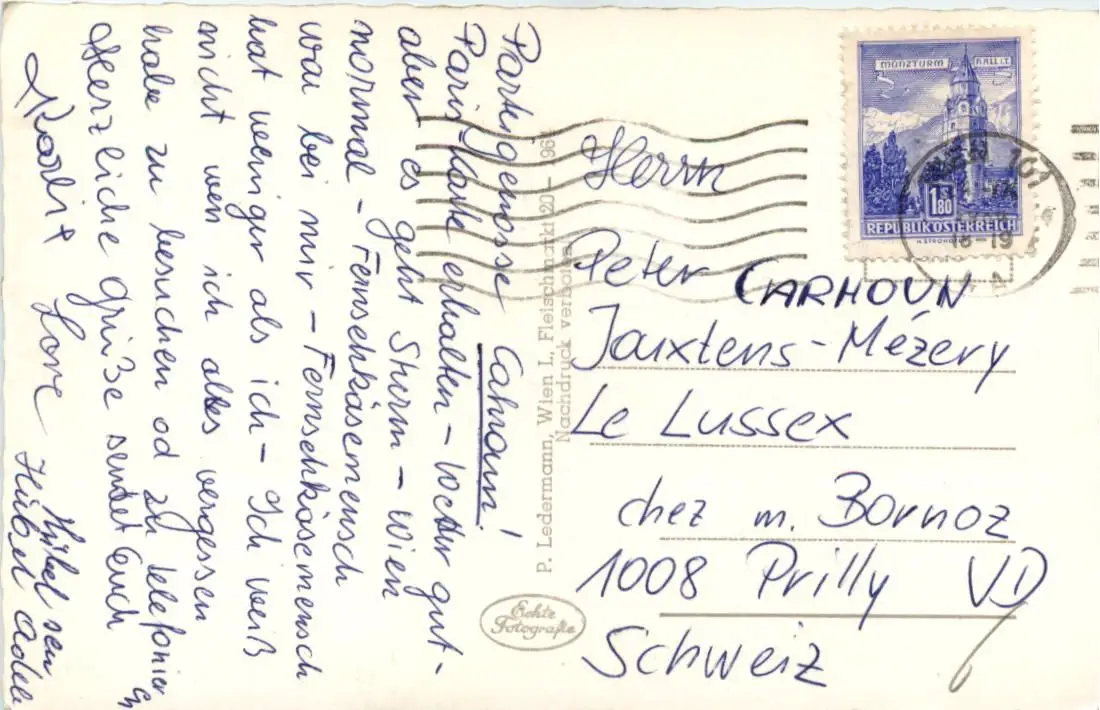 Parteigenosse Cahoun!
Paris-Karte erhalten – Wetter gut –
aber es geht Sturm – Wien
normal – Fernsehkäsemensch
war bei mir – Fernsehkäsemensch
hat weniger als ich – Ich weiß
nicht wen ich alles vergessen
habe zu besuchen od zu telefonieren
Herzliche Grüße sendet Euch
Lore
Hübel
MÜNZTURM HALL i.T.
1 S 80
REPUBLIK ÖSTERREICH
WIEN 101
18-19
Herrn
Peter CARHOUN
Jouxtens-Mézery
Le Lussex
chez m. Bornoz
1008 Prilly VD
Schweiz
P. Ledermann, Wien I., Fleischmarkt 20 – 196
Nachdruck verboten
Echte
Fotografie